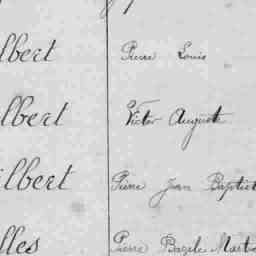 lbert Pierre Louis
lbert Victor Auguste
ilbert Pierre Jean Baptist
lles Pierre Bazile